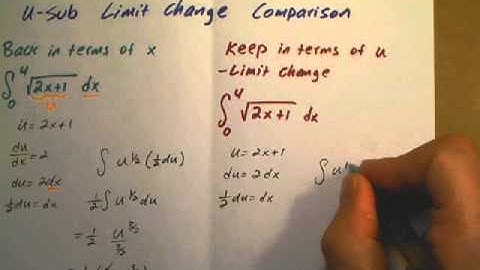 u-sub Limit Change Comparison
Back in terms of x
∫₀⁴ √(2x+1) dx
u = 2x+1
du/dx = 2
du = 2dx
½du = dx
∫ u^½ (½du)
½∫ u^½ du
= ½ u^(3/2)/(3/2)
Keep in terms of u
-Limit change
∫₀⁴ √(2x+1) dx
u = 2x+1
du = 2dx
½du = dx
∫ u^½